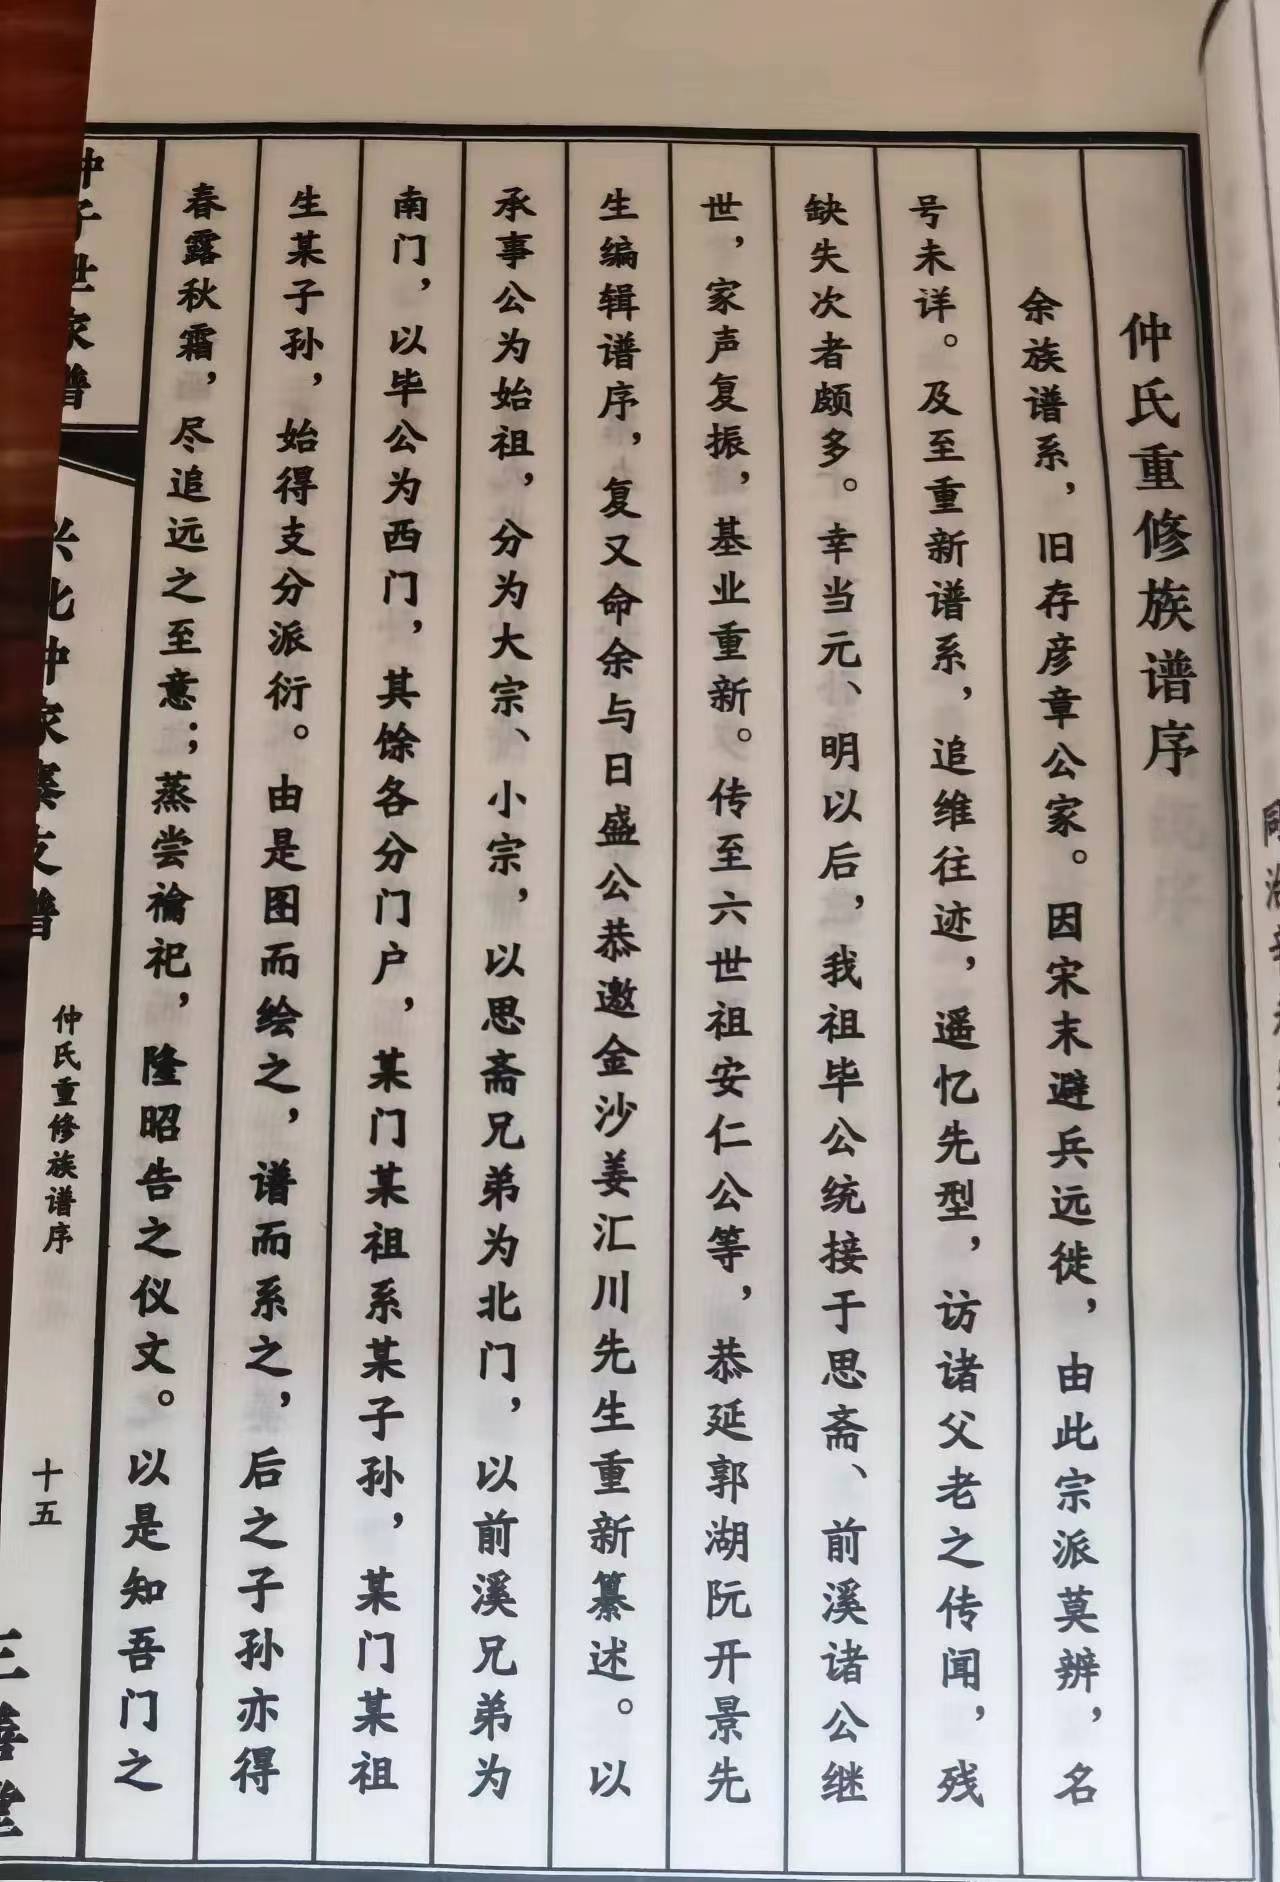 仲氏重修族谱序
余族谱系，旧存彦章公家。因宋末避兵远徙，由此宗派莫辨，名
号未详。及至重新谱系，追维往迹，遥忆先型，访诸父老之传闻，残
缺失次者颇多。幸当元、明以后，我祖毕公统接于思斋、前溪诸公继
世，家声复振，基业重新。传至六世祖安仁公等，恭延郭湖阮开景先
生编辑谱序，复又命余与日盛公恭邀金沙姜汇川先生重新纂述。以
承事公为始祖，分为大宗、小宗，以思斋兄弟为北门，以前溪兄弟为
南门，以毕公为西门，其馀各分门户，某门某祖系某子孙，某门某祖
生某子孙，始得支分派衍。由是图而绘之，谱而系之，后之子孙亦得
春露秋霜，尽追远之至意；蒸尝禴祀，隆昭告之仪文。以是知吾门之
仲子世家谱
兴化仲家寨支谱
仲氏重修族谱序
十五